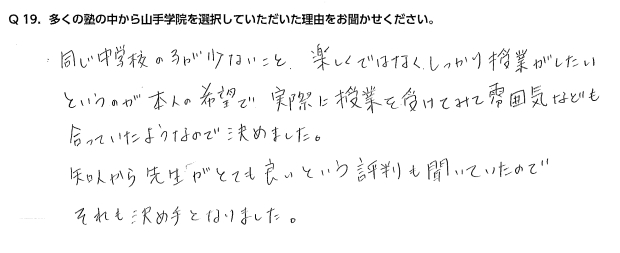 Q 19. 多くの塾の中から山手学院を選択していただいた理由をお聞かせください。
・同じ中学校の子が少ないこと、楽しくではなく、しっかり授業がしたい
というのが本人の希望で 実際に授業を受けてみて雰囲気なども
合っていたようなので決めました。
知人から先生がとても良いという評判も聞いていたので
それも決め手となりました。